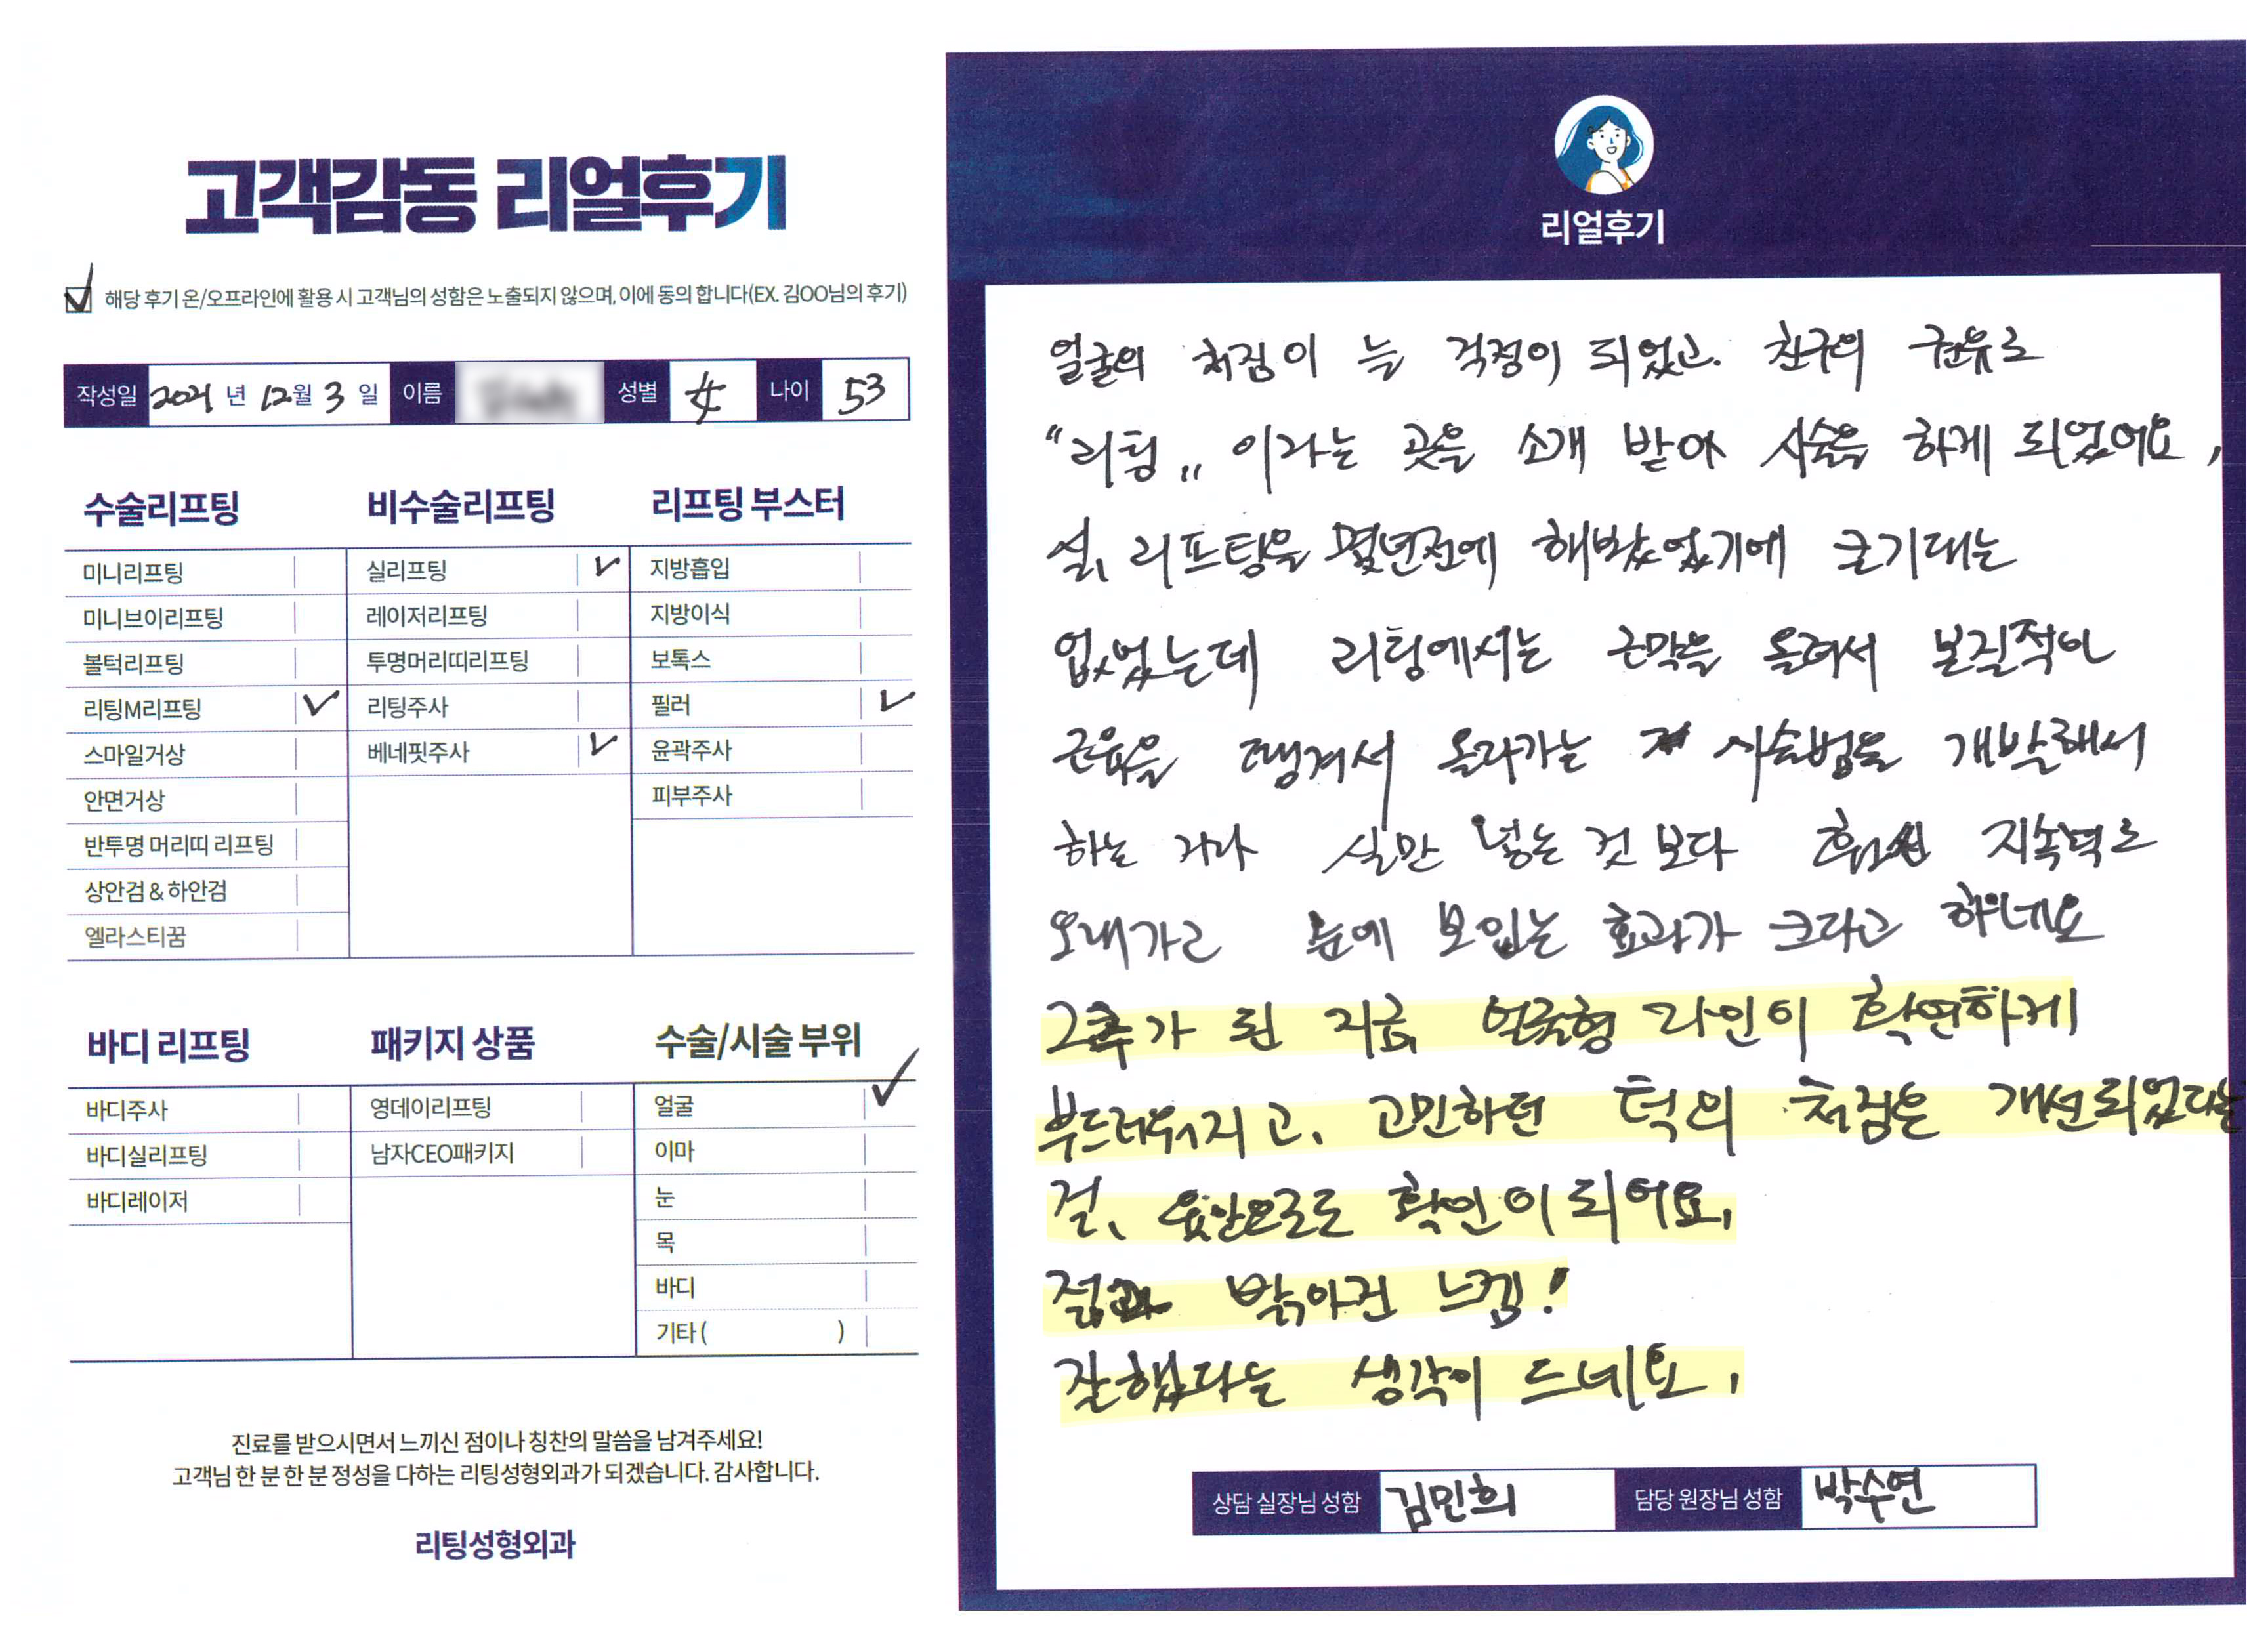 고객감동 리얼후기
해당 후기 온/오프라인에 활용 시 고객님의 성함은 노출되지 않으며, 이에 동의 합니다(EX. 김OO님의 후기)
작성일 2021 년 12월 3 일 이름 성별 女 나이 53
수술리프팅
미니리프팅
미니브이리프팅
볼턱리프팅
리팅M리프팅
스마일거상
안면거상
반투명 머리띠 리프팅
상안검 & 하안검
엘라스티꿈
비수술리프팅
실리프팅
레이저리프팅
투명머리띠리프팅
리팅주사
베네핏주사
리프팅 부스터
지방흡입
지방이식
보톡스
필러
윤곽주사
피부주사
바디 리프팅
바디주사
바디실리프팅
바디레이저
패키지 상품
영데이리프팅
남자CEO패키지
수술/시술 부위
얼굴
이마
눈
목
바디
기타 ( )
진료를 받으시면서 느끼신 점이나 칭찬의 말씀을 남겨주세요!
고객님 한 분 한 분 정성을 다하는 리팅성형외과가 되겠습니다. 감사합니다.
리팅성형외과
리얼후기
얼굴의 처짐이 늘 걱정이 되었고. 친구의 권유로
"리팅" 이라는 곳을 소개 받아 시술을 하게 되었어요,
실, 리프팅을 몇년전에 해봤었기에 큰기대는
없었는데 리팅에서는 근막을 올려서 본질적인
근육을 땡겨서 올라가는 시술법을 개발해서
하는 거라 실만 넣는 것 보다 훨씬 지속력도
오래가고 눈에 보이는 효과가 크다고 하네요
2주가 된 지금 얼굴형 라인이 확연하게
부드러워지고, 고민하던 턱의 처짐은 개선되었다는
걸, 육안으로도 확인이 되어요,
젊고 밝아진 느낌!
잘했다는 생각이 드네요,
상담 실장님 성함 김민희 담당 원장님 성함 박수연